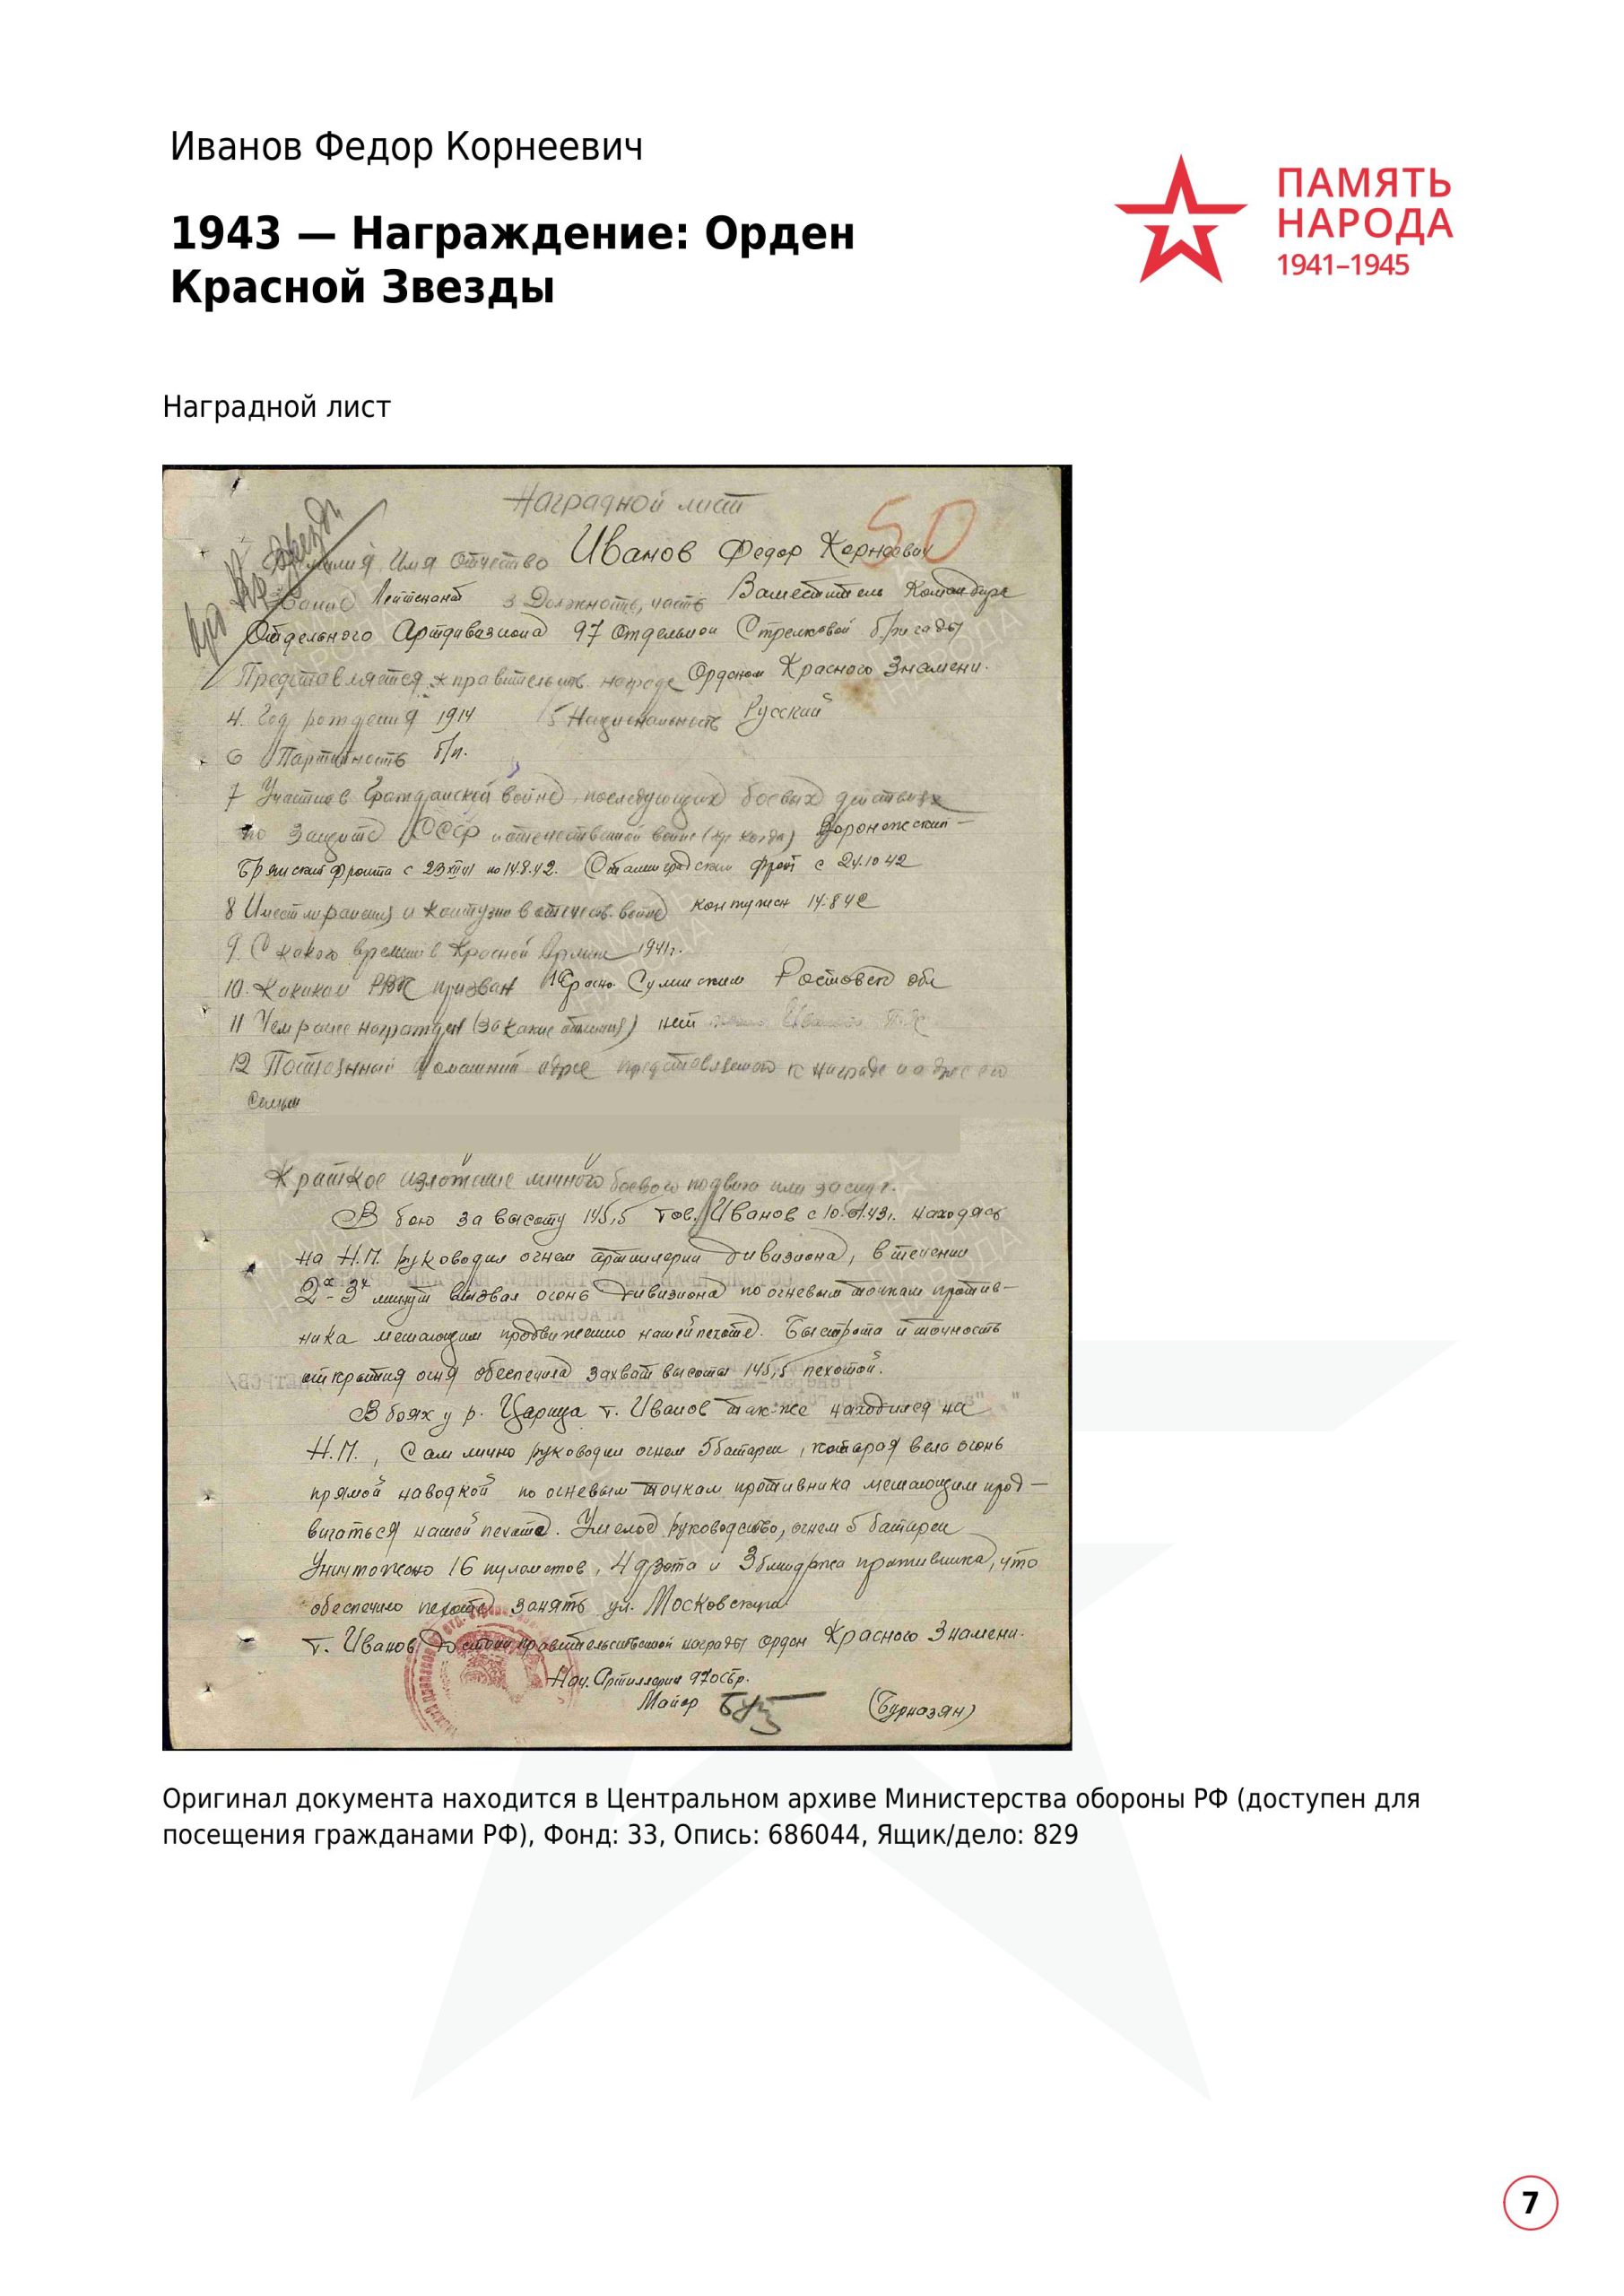 Иванов Федор Корнеевич
ПАМЯТЬ
НАРОДА
1941–1945
1943 — Награждение: Орден
Красной Звезды
Наградной лист
Наградной лист
50
Кр. Звезды
Фамилия Имя Отчество Иванов Федор Корнеевич
Звание Лейтенант 3 Должность, часть Заместитель Командира
Отдельного Артдивизиона 97 Отдельной Стрелковой бригады
Представляется к правительств. награде Орденом Красного Знамени.
4. Год рождения 1914 5 Национальность Русский
6 Партийность б/п.
7 Участие в Гражданской войне, последующих боевых действиях
по защите СССР и отечественной войне (где когда) Воронежский-
Брянский фронта с 23 XII 41 по 14.8.42. Сталинградский фронт с 24.10 42
8 Имеет ли ранения и контузии в отечеств. войне контужен 14.8 42
9. С какого времени в Красной Армии 1941г.
10. Каким РВК призван Красно Сулинским Ростовск обл
11 Чем ранее награжден (за какие отличия) нет
12 Постоянный домашний адрес представляемого к награде и адрес его
семьи
Краткое изложение личного боевого подвига или заслуг.
В бою за высоту 145,5 тов. Иванов с 10.01.43г. находясь
на Н.П. руководил огнем артиллерии дивизиона, в течении
2х-3х минут вызвал огонь дивизиона по огневым точкам против-
ника мешающим продвижению нашей пехоте. Быстрота и точность
открытия огня обеспечила захват высоты 145,5 пехотой.
В боях у р. Царица т. Иванов так-же находился на
Н.П., Сам лично руководил огнем 5 батареи, которая вела огонь
прямой наводкой по огневым точкам противника мешающим прод-
вигаться нашей пехоте. Умелое руководство, огнем 5 батареи
Уничтожено 16 пулеметов, 4 дзота и 3 блиндажа противника, что
обеспечило пехоте занять ул. Московскую.
т. Иванов Достоин правительственной награды орден Красного Знамени.
Нач. Артиллерии 97осбр.
Майор (Бурназян)
Оригинал документа находится в Центральном архиве Министерства обороны РФ (доступен для
посещения гражданами РФ), Фонд: 33, Опись: 686044, Ящик/дело: 829
7